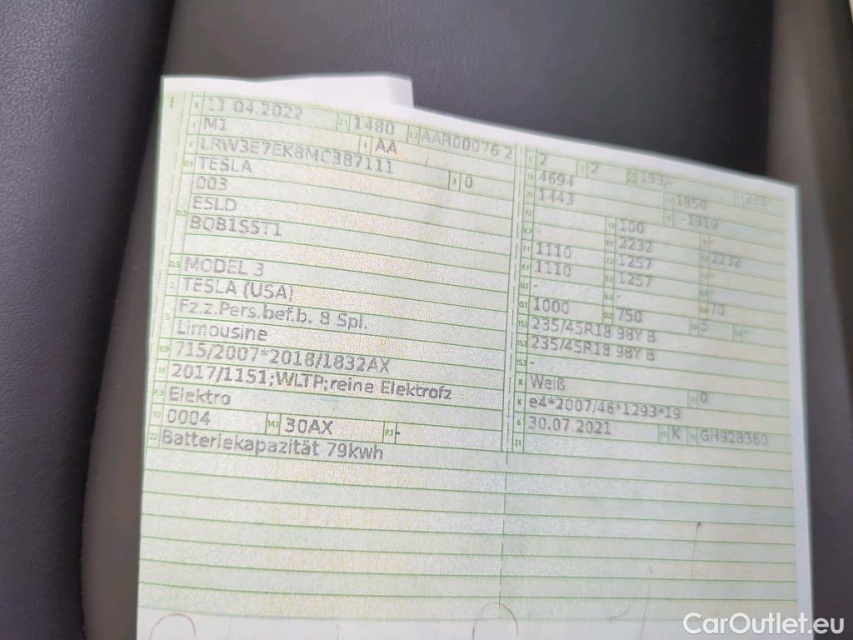 11 04.2022 1480 AAR00076 2
M1 AA
LRW3E7EK8MC387111
TESLA 0
003
E5LD
BQB1S5T1
MODEL 3
TESLA (USA)
Fz.z.Pers.bef.b. 8 Spl.
Limousine
715/2007*2018/1832AX
2017/1151;WLTP;reine Elektrofz
Elektro
0004 30AX -
Batteriekapazität 79kwh
2 2
4694 1850
1443 -1919
- 100
- 2232
1110 1257 2232
1110 1257
1000 750 70
235/45R18 98Y B 5
235/45R18 98Y B
-
Weiß 0
e4*2007/46*1293*19
30.07.2021 K GH928360
CarOutlet.eu